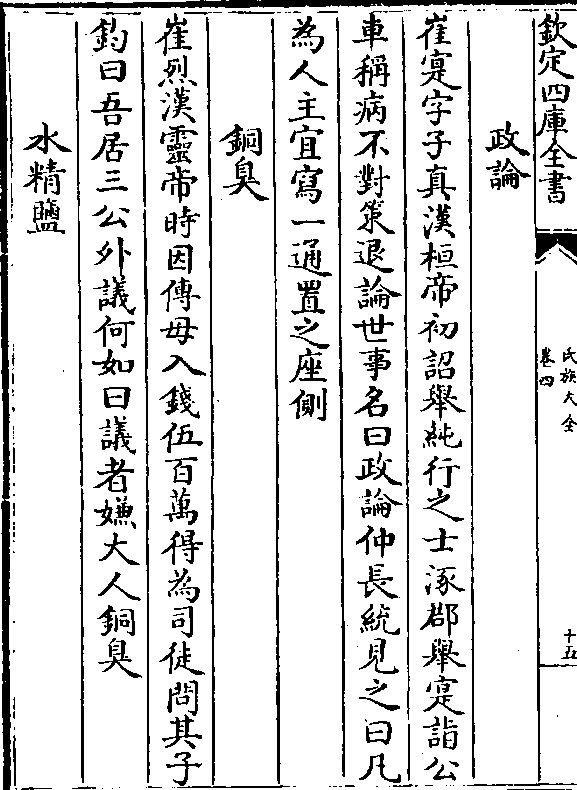 欽定四庫全書
氏族大全
卷四
十五
政論
崔寔字子真漢桓帝初詔舉純行之士涿郡舉寔詣公
車稱病不對策退論世事名曰政論仲長統見之曰凡
為人主宜寫一通置之座側
銅臭
崔烈漢靈帝時因傅母入錢伍百萬得為司徒問其子
鈞曰吾居三公外議何如曰議者嫌大人銅臭
水精鹽